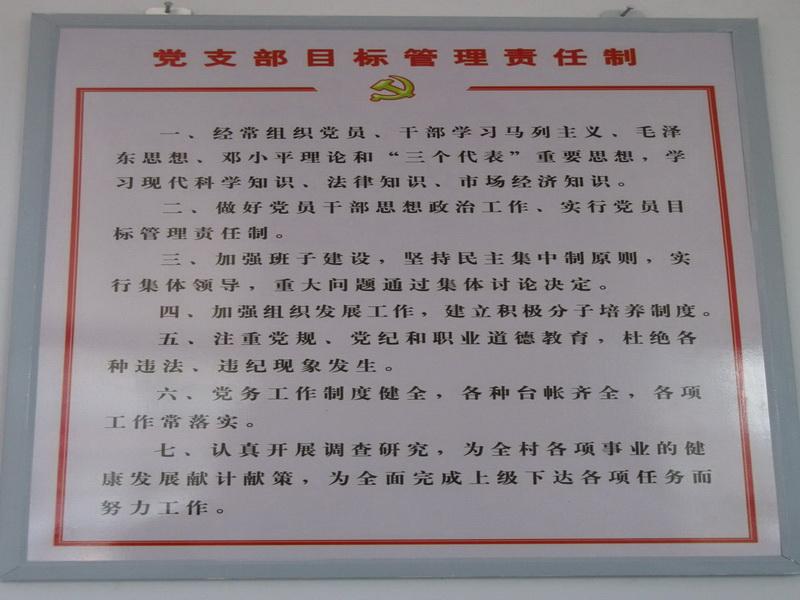 党支部目标管理责任制
一、经常组织党员、干部学习马列主义、毛泽
东思想、邓小平理论和“三个代表”重要思想，学
习现代科学知识、法律知识、市场经济知识。
二、做好党员干部思想政治工作、实行党员目
标管理责任制。
三、加强班子建设，坚持民主集中制原则，实
行集体领导，重大问题通过集体讨论决定。
四、加强组织发展工作，建立积极分子培养制度。
五、注重党规、党纪和职业道德教育，杜绝各
种违法、违纪现象发生。
六、党务工作制度健全，各种台帐齐全，各项
工作常落实。
七、认真开展调查研究，为全村各项事业的健
康发展献计献策，为全面完成上级下达各项任务而
努力工作。